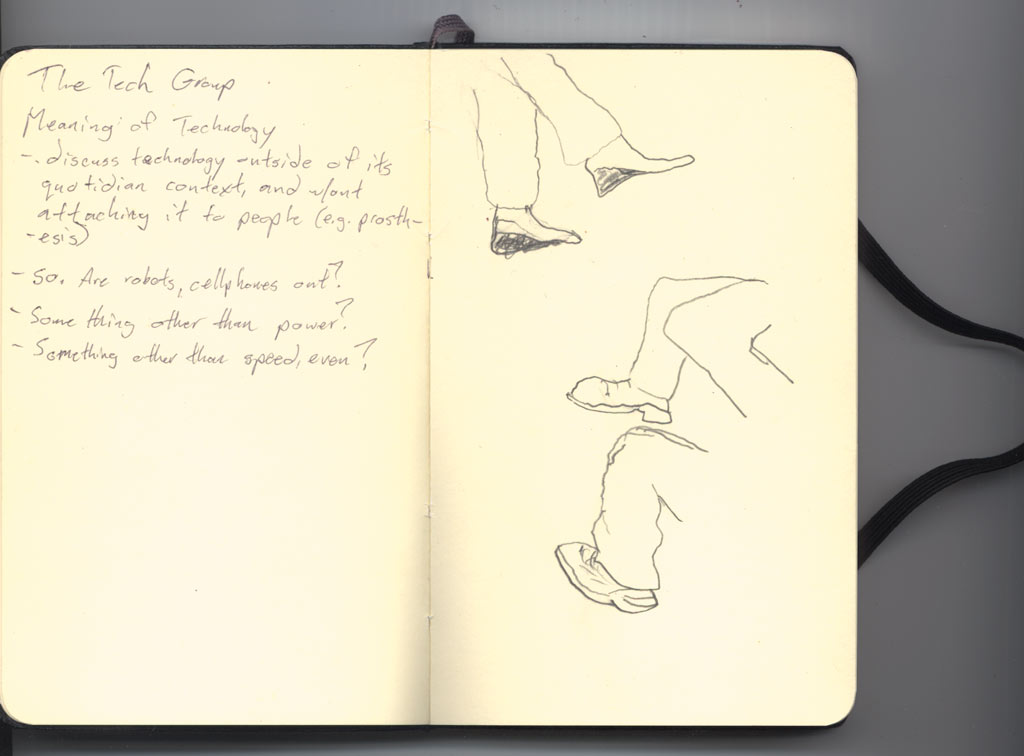 The Tech Group
Meaning of Technology
- discuss technology outside of its
quotidian context, and w/out
attaching it to people (e.g. prosth-
-esis)
- So. Are robots, cellphones out?
- Something other than power?
- Something other than speed, even?